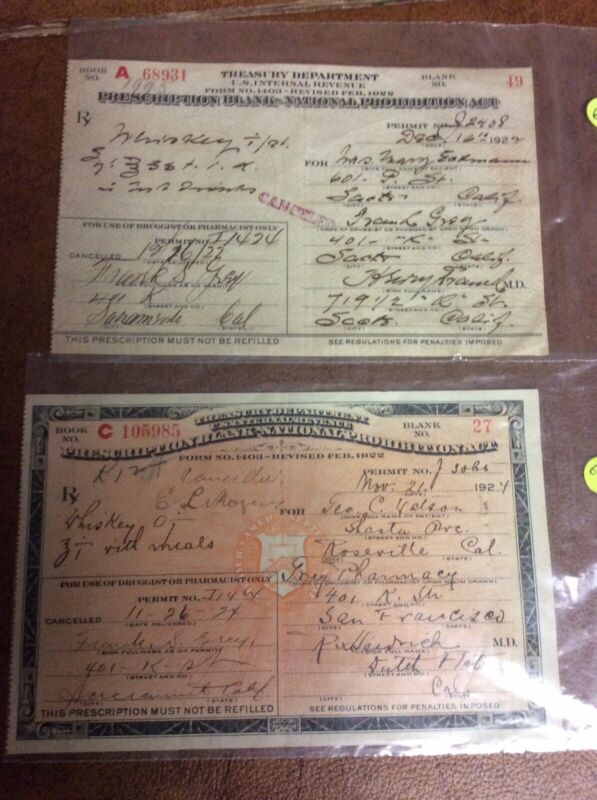 BOOK NO. A 68931
TREASURY DEPARTMENT
U.S. INTERNAL REVENUE
FORM NO. 1403 - REVISED FEB. 1922
BLANK NO. 49
PRESCRIPTION BLANK - NATIONAL PROHIBITION ACT
PERMIT NO.
℞
Whiskey
Dec 16th 1922
FOR Mrs. Mary
(GIVE FULL NAME OF PATIENT)
601 - P. St.
(STREET AND NO.)
Sacto Calif.
(CITY) (STATE)
CANCELED
Frank Grey
(NAME OF DRUGGIST OR PHARMACIST UPON WHOM DRAWN)
401 - "K" St
(STREET AND NO.)
Sacto Calif.
(CITY) (STATE)
Henry M.D.
(SIGN FULL NAME)
719 1/2 "K" St.
(STREET AND NO.)
Calif.
(CITY) (STATE)
FOR USE OF DRUGGIST OR PHARMACIST ONLY
PERMIT NO. I1424
CANCELLED 12/26/22
(DATE DELIVERED)
Frank S. Grey
401 K
Sacramento Cal
(CITY) (STATE)
THIS PRESCRIPTION MUST NOT BE REFILLED
SEE REGULATIONS FOR PENALTIES IMPOSED
BOOK NO. C 105985
TREASURY DEPARTMENT
U.S. INTERNAL REVENUE
BLANK NO. 27
PRESCRIPTION BLANK - NATIONAL PROHIBITION ACT
FORM NO. 1403 - REVISED FEB. 1922
PERMIT NO.
℞
Nov. 21 1924
Whiskey
with meals
FOR Geo. C.
(GIVE FULL NAME OF PATIENT)
Shasta
(STREET AND NO.)
Roseville Cal.
(CITY) (STATE)
Grey Pharmacy
(NAME OF DRUGGIST OR PHARMACIST UPON WHOM DRAWN)
401 K. Str
(STREET AND NO.)
San Francisco
(CITY) (STATE)
M.D.
(SIGN FULL NAME)
Dutch Flat
(STREET AND NO.)
(CITY) (STATE)
FOR USE OF DRUGGIST OR PHARMACIST ONLY
PERMIT NO.
CANCELLED 11-26-24
(DATE DELIVERED)
Frank S. Grey
(SIGN FULL NAME AS ON PERMIT)
401-K-St
(STREET AND NO.)
Sacramento Calf
(CITY) (STATE)
THIS PRESCRIPTION MUST NOT BE REFILLED
SEE REGULATIONS FOR PENALTIES IMPOSED